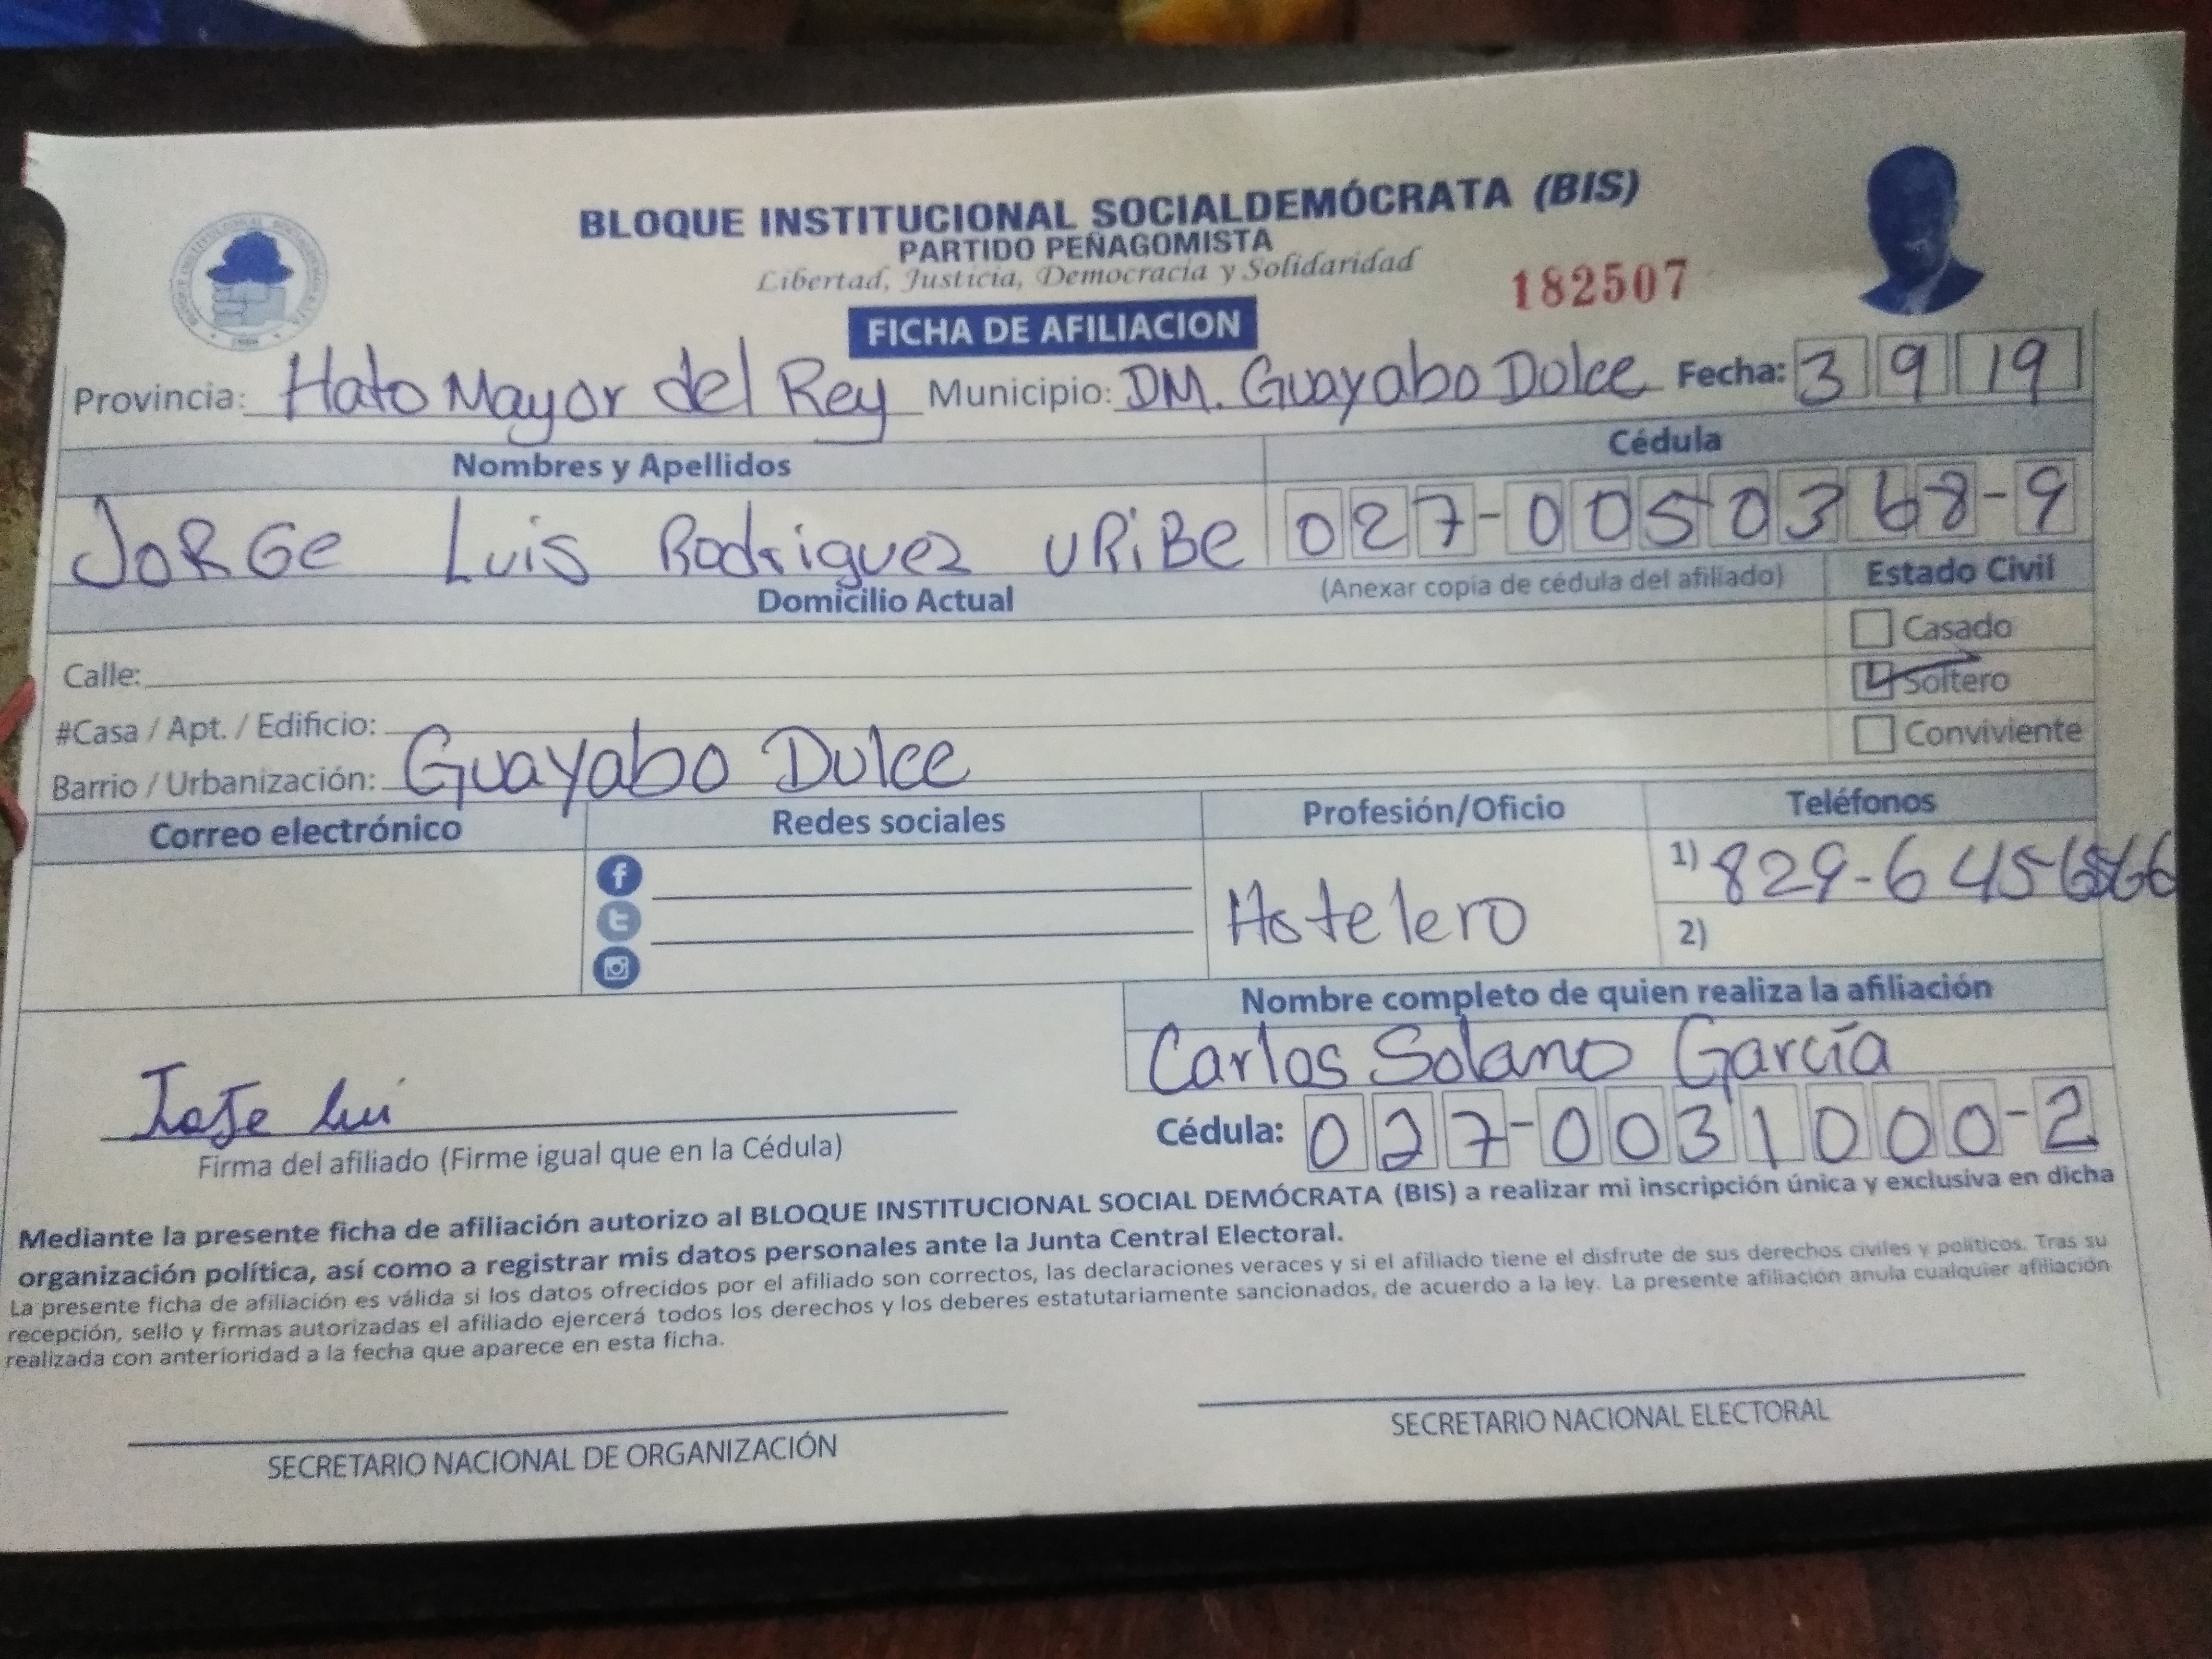 BLOQUE INSTITUCIONAL SOCIALDEMÓCRATA (BIS)
PARTIDO PEÑAGOMISTA
Libertad, Justicia, Democracia y Solidaridad
182507
FICHA DE AFILIACION
Provincia: Hato Mayor del Rey Municipio: DM. Guayabo Dolce Fecha: 3 9 19
Nombres y Apellidos Cédula
JORGe Luis Rodriguez URiBe 027-0050368-9
Domicilio Actual (Anexar copia de cédula del afiliado) Estado Civil
Casado
Calle:
Soltero
#Casa / Apt. / Edificio:
Conviviente
Barrio / Urbanización: Guayabo Dulce
Correo electrónico Redes sociales Profesión/Oficio Teléfonos
1) 829-645
Hotelero
2)
Nombre completo de quien realiza la afiliación
Carlos Solano García
Cédula: 027-0031000-2
Firma del afiliado (Firme igual que en la Cédula)
Mediante la presente ficha de afiliación autorizo al BLOQUE INSTITUCIONAL SOCIAL DEMÓCRATA (BIS) a realizar mi inscripción única y exclusiva en dicha
organización política, así como a registrar mis datos personales ante la Junta Central Electoral.
La presente ficha de afiliación es válida si los datos ofrecidos por el afiliado son correctos, las declaraciones veraces y si el afiliado tiene el disfrute de sus derechos civiles y políticos. Tras su
recepción, sello y firmas autorizadas el afiliado ejercerá todos los derechos y los deberes estatutariamente sancionados, de acuerdo a la ley. La presente afiliación anula cualquier afiliación
realizada con anterioridad a la fecha que aparece en esta ficha.
SECRETARIO NACIONAL DE ORGANIZACIÓN SECRETARIO NACIONAL ELECTORAL